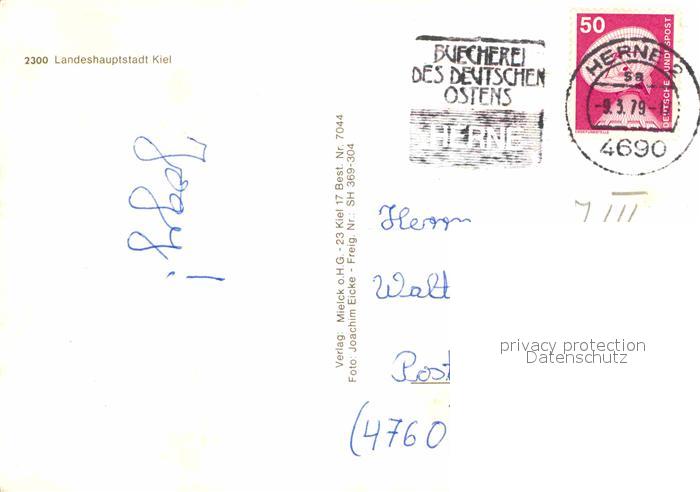 2300 Landeshauptstadt Kiel
BUECHEREI
DES DEUTSCHEN
OSTENS
HERNE
50
DEUTSCHE BUNDESPOST
HERNE
sa
-9.3.79-
4690
Verlag: Mielck o.H.G. - 23 Kiel 17 Best. Nr. 7044
Foto: Joachim Eicke - Freig. Nr.: SH 369-304
Herrn
Walt
Post
(4760
privacy protection
Datenschutz